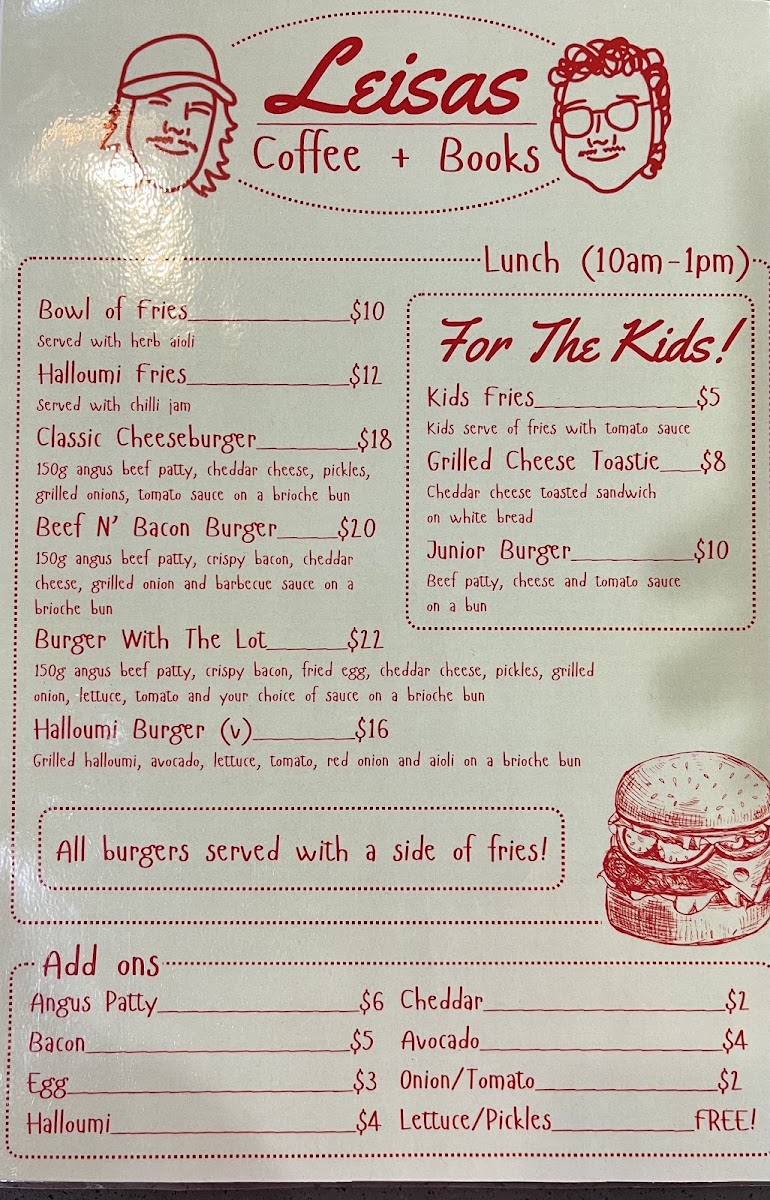 Leisas
Coffee + Books
Lunch (10am-1pm)
Bowl of Fries $10
Served with herb aioli
Halloumi Fries $12
Served with chilli jam
Classic Cheeseburger $18
150g angus beef patty, cheddar cheese, pickles,
grilled onions, tomato sauce on a brioche bun
Beef N' Bacon Burger $20
150g angus beef patty, crispy bacon, cheddar
cheese, grilled onion and barbecue sauce on a
brioche bun
Burger With The Lot $22
150g angus beef patty, crispy bacon, fried egg, cheddar cheese, pickles, grilled
onion, lettuce, tomato and your choice of sauce on a brioche bun
Halloumi Burger (v) $16
Grilled halloumi, avocado, lettuce, tomato, red onion and aioli on a brioche bun
For The Kids!
Kids Fries $5
Kids serve of fries with tomato sauce
Grilled Cheese Toastie $8
Cheddar cheese toasted sandwich
on white bread
Junior Burger $10
Beef patty, cheese and tomato sauce
on a bun
All burgers served with a side of fries!
Add ons
Angus Patty $6
Bacon $5
Egg $3
Halloumi $4
Cheddar $2
Avocado $4
Onion/Tomato $2
Lettuce/Pickles FREE!